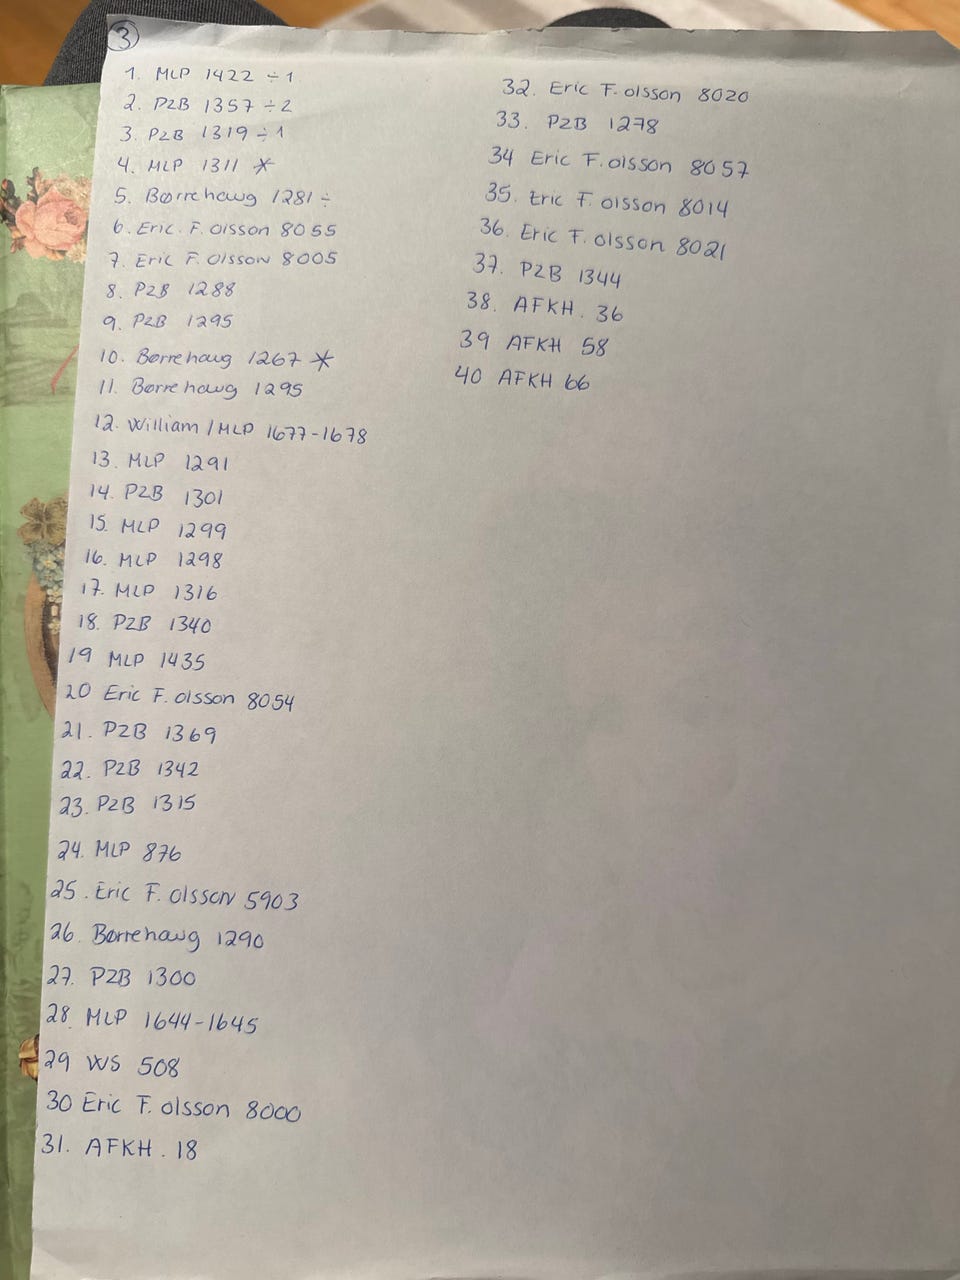 3
1. MLP 1422 ÷ 1
2. PZB 1357 ÷ 2
3. PZB 1319 ÷ 1
4. MLP 1311 *
5. Børrehaug 1281 ÷
6. Eric. F. Olsson 8055
7. Eric F. Olsson 8005
8. PZB 1288
9. PZB 1295
10. Børrehaug 1267 *
11. Børrehaug 1295
12. William / MLP 1677-1678
13. MLP 1291
14. PZB 1301
15. MLP 1299
16. MLP 1298
17. MLP 1316
18. PZB 1340
19 MLP 1435
20 Eric F. Olsson 8054
21. PZB 1369
22. PZB 1342
23. PZB 1315
24. MLP 876
25. Eric F. Olsson 5903
26. Børrehaug 1290
27. PZB 1300
28. MLP 1644-1645
29 WS 508
30 Eric F. Olsson 8000
31. AFKH. 18
32. Eric F. Olsson 8020
33. PZB 1278
34 Eric F. Olsson 8057
35. Eric F. Olsson 8014
36. Eric F. Olsson 8021
37. PZB 1344
38. AFKH. 36
39 AFKH 58
40 AFKH 66